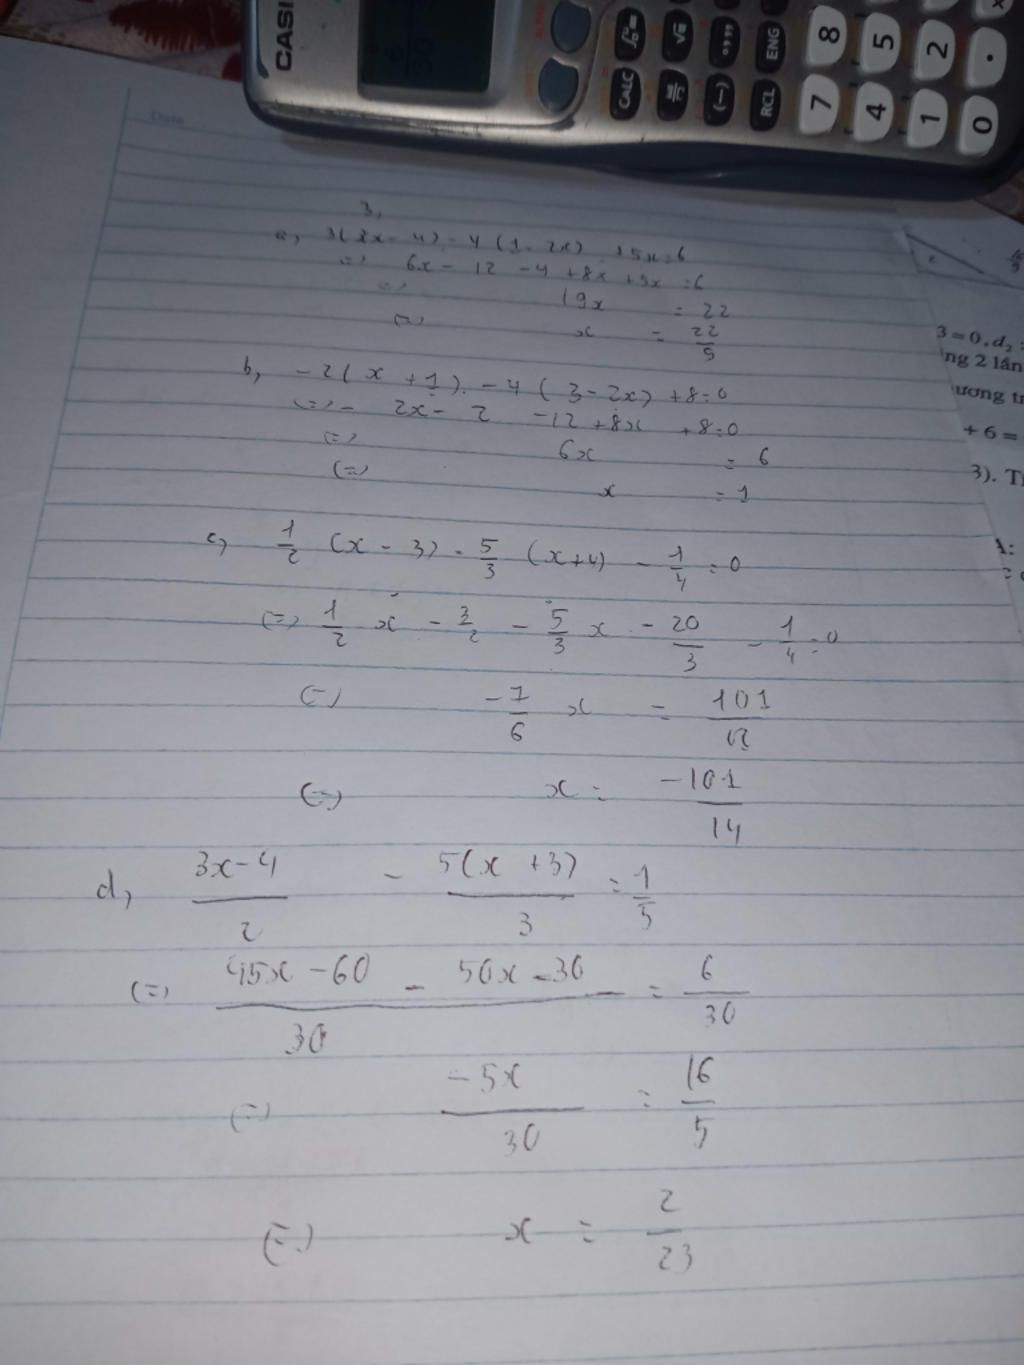 CASI
CALC
√▫
(−)
RCL
ENG
7
8
4
5
1
2
0
.
Date
3,
a, 3(2x - 4) - 4 (1 - 2x) + 5x = 6
(=) 6x - 12 - 4 + 8x + 5x = 6
(=) 19x = 22
(=) x = 22/9
b, - 2 ( x + 1 ) - 4 ( 3 - 2x ) + 8 = 0
(=) - 2x - 2 - 12 + 8x + 8 = 0
(=) 6x = 6
(=) x = 1
c, 1/2 (x - 3) - 5/3 (x + 4) - 1/4 = 0
(=) 1/2 x - 3/2 - 5/3 x - 20/3 - 1/4 = 0
(=) - 7/6 x = 101/12
(=) x = -101/14
d, 3x - 4/2 - 5(x + 3)/3 = 1/5
(=) 45x - 60 - 50x - 30/30 = 6/30
(=) - 5x/30 = 16/5
(=) x = 2/23
3 = 0, d₂ :
ng 2 lần
ương tr
+ 6 =
3). T